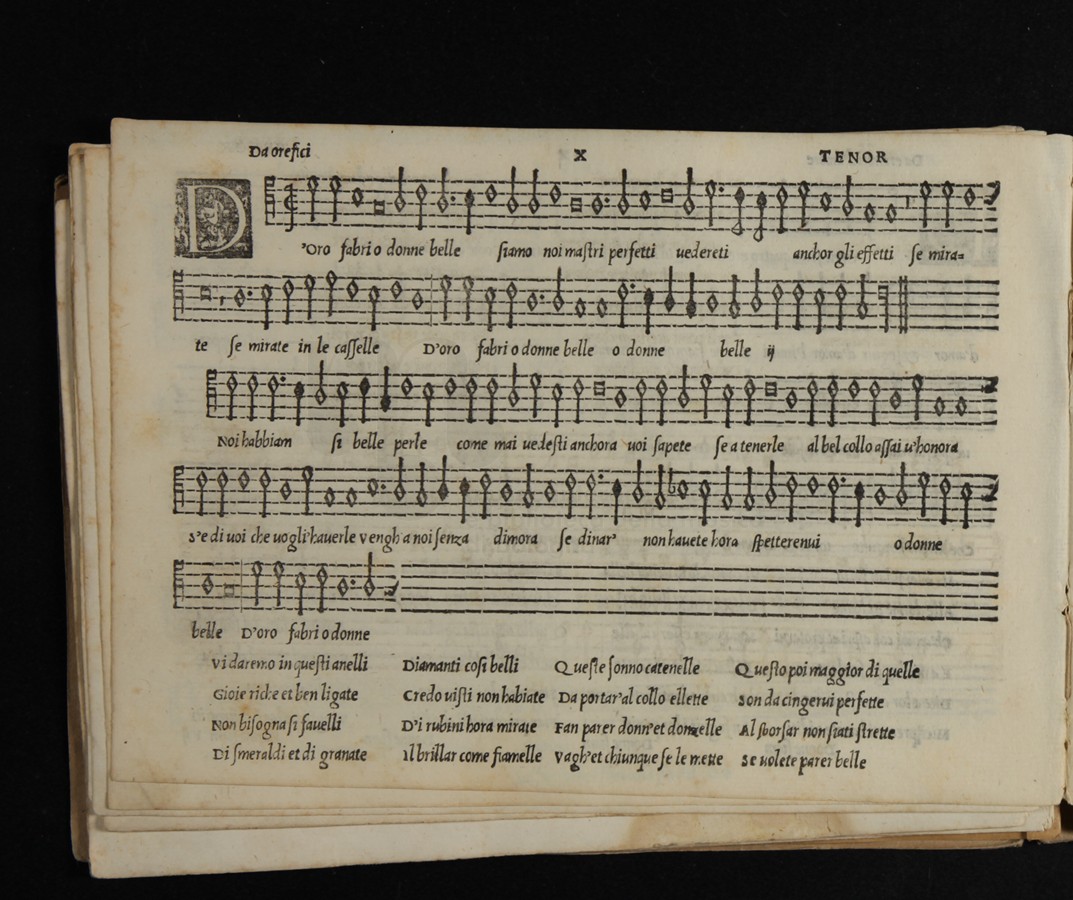 Da orefici X TENOR
D'Oro fabri o donne belle siamo noi maſtri perfetti uedereti anchor gli effetti ſe mira=
te ſe mirate in le caſſelle D'oro fabri o donne belle o donne belle ij
Noi habbiam ſi belle perle come mai uedeſti anchora uoi ſapete ſe a tenerle al bel collo aſſai u'honora
S'e di uoi che uogli'hauerle vengh a noi ſenza dimora ſe dinar' non hauete hora ſpetterenui o donne
belle D'oro fabri o donne
Vi daremo in queſti anelli
Gioie riche et ben ligate
Non biſogna ſi fauelli
Di ſmeraldi et di granate
Diamanti coſi belli
Credo uiſti non habiate
D'i rubini hora mirate
Il brillar come fiamelle
Queſte ſonno catenelle
Da portar'al collo ellette
Fan parer donn'et donzelle
Vagh'et chiunque ſe le mette
Queſto poi maggior di quelle
Son da cingerui perfette
Al sborſar non ſiati ſtrette
Se uolete parer belle